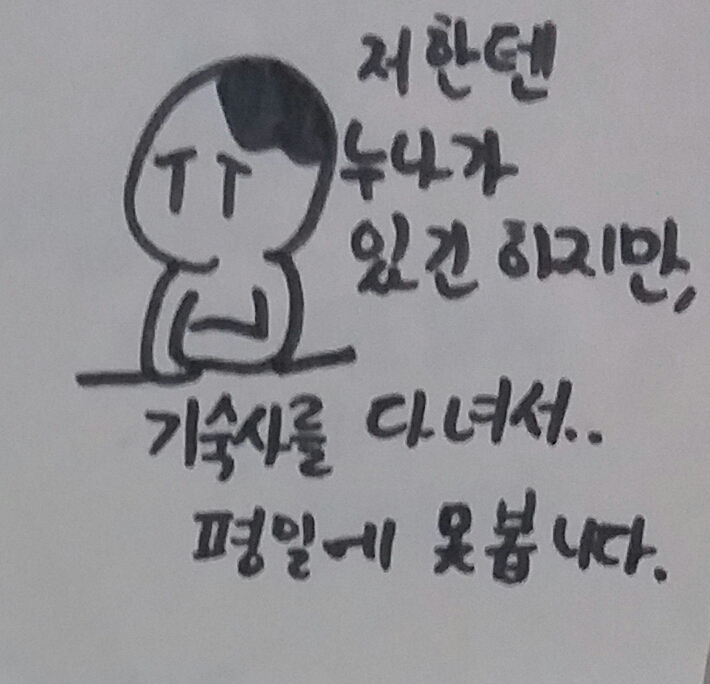 저한텐
누나가
있건 하지만,
기숙사를 다녀서..
평일에 못봅니다.